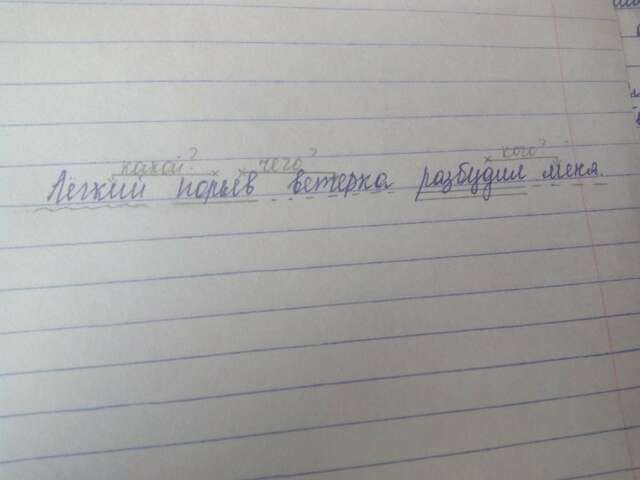 какой? чего? кого?
Лёгкий порыв ветерка разбудил меня.